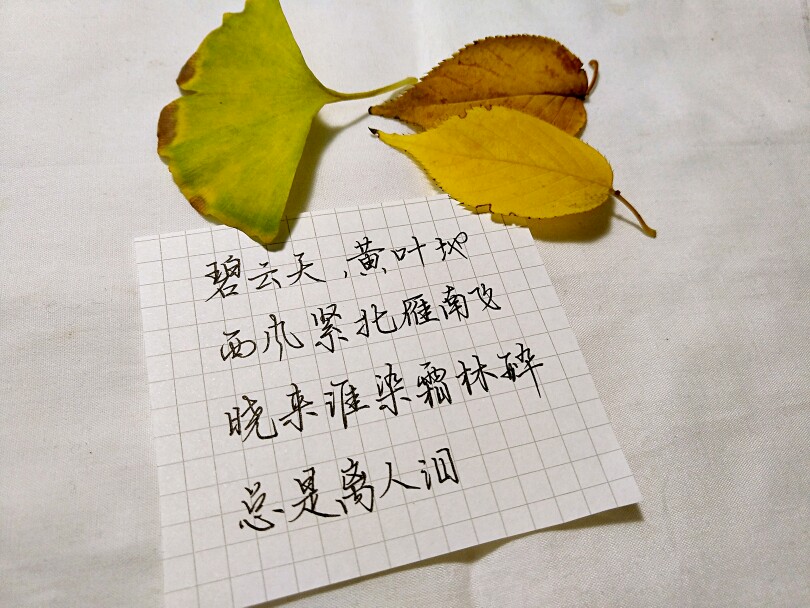 碧云天,黄叶地
西风紧北雁南飞
晓来谁染霜林醉
总是离人泪